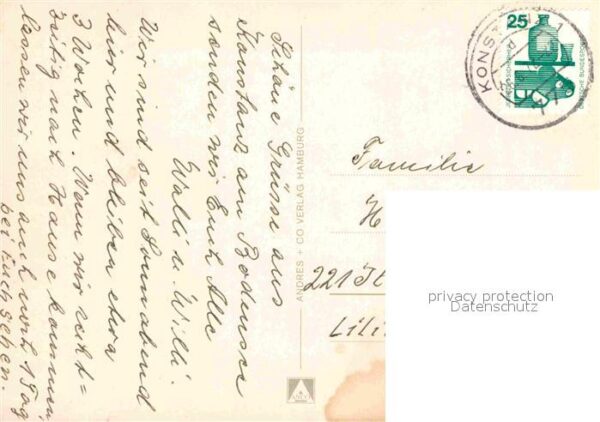 Schöne Grüsse aus
Konstanz am Bodensee
senden wir Euch Alle
Walli u. Willi.
Wir sind seit Sonnabend
hier und bleiben etwa
3 Wochen. Wenn wir recht=
zeitig nach Hause kommen
lassen wir uns auch noch 1 Tag
bei Euch sehen.
ANDRES + CO VERLAG HAMBURG
25
DEUTSCHE BUNDESPOST
KONST
Familie
H
221 It
Lili
privacy protection
Datenschutz